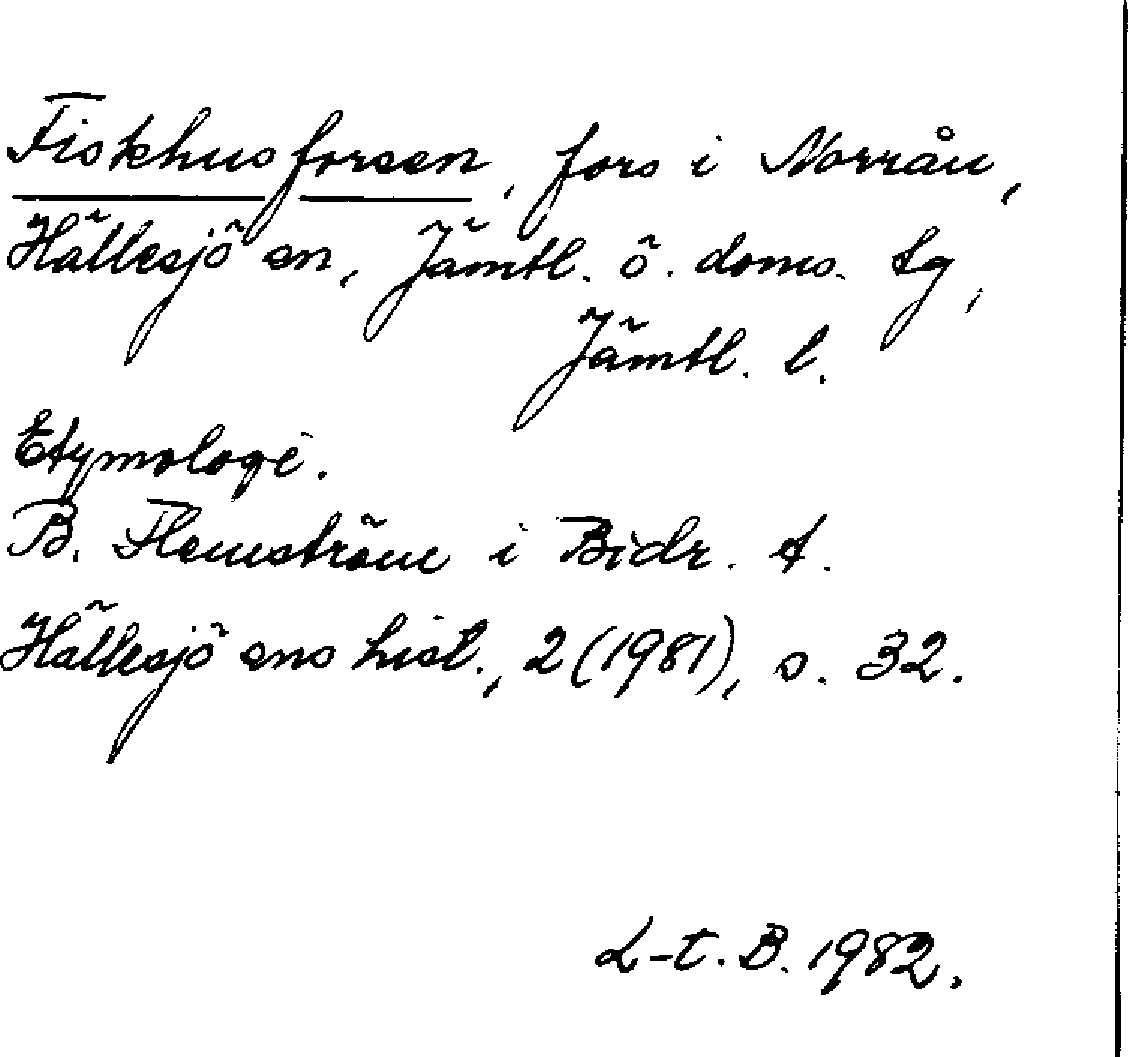 Fiskhusforsen, fors i Norrån,
Hällesjö sn, Jämtl. ö. doms. tg,
Jämtl. l.
Etymologi.
B. Flemström i Bidr. t.
Hällesjö sns hist., 2 (1981), s. 32.
L-t. B. 1982.